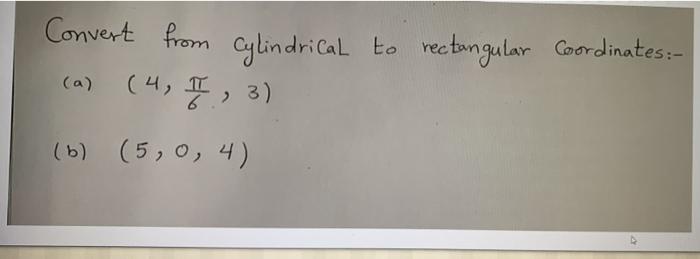 Convert from Cylindrical to rectangular Coordinates:-
(a) (4, π/6, 3)
(b) (5, 0, 4)